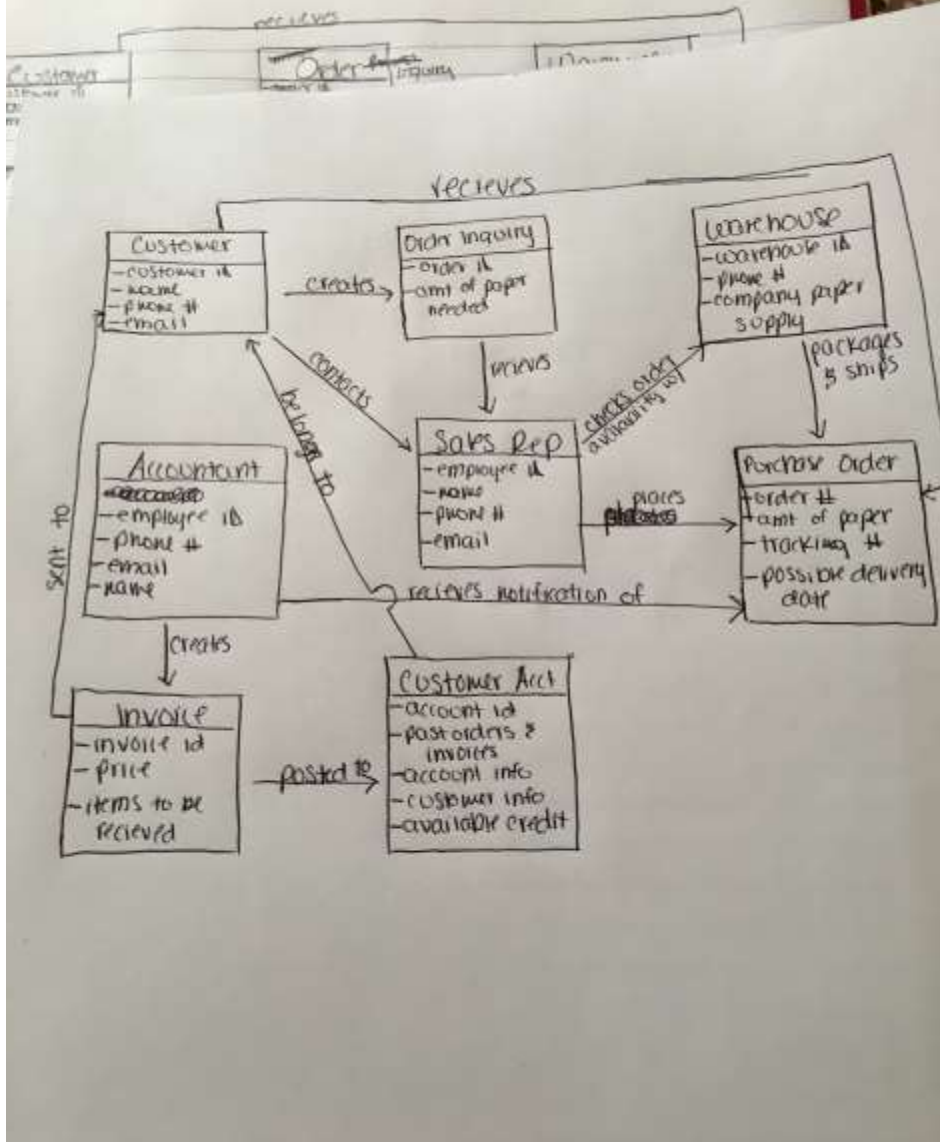 recieves
Customer
Order
Inquiry
recieves
Customer
-customer id
-name
-phone #
-email
creates
Order Inquiry
-order id
-amt of paper
needed
Warehouse
-warehouse id
-phone #
-company paper
supply
contacts
recieves
checks order
availability w/
packages
& ships
belongs to
Accountant
-employee ID
-phone #
-email
-name
Sales Rep
-employee id
-name
-phone #
-email
places
Purchase Order
-order #
-amt of paper
-tracking #
-possible delivery
date
sent to
recieves notification of
creates
Invoice
-invoice id
-price
-items to be
recieved
posted to
Customer Acct
-account id
-past orders &
invoices
-account info
-customer info
-available credit